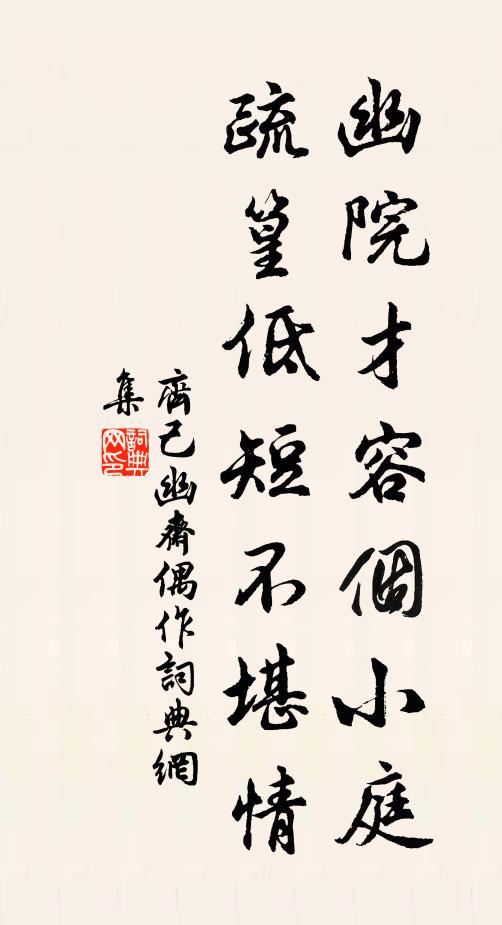 幽院才容個小庭
疏篁低短不堪情
齊己幽齋偶作詞典網
集
詞典
网印